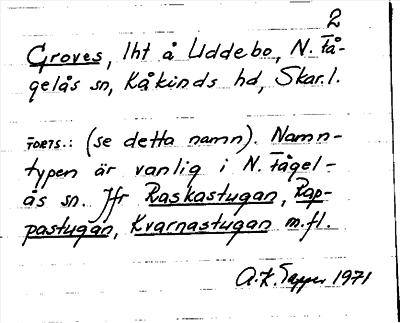 2
Groves, lht å Uddebo, N. Få-
gelås sn, Kåkinds hd, Skar.l.
FORTS.: (se detta namn). Namn-
typen är vanlig i N. Fågel-
ås sn. Jfr Raskastugan, Rap-
pastugan, Kvarnastugan m.fl.
A.K. Tapper 1971